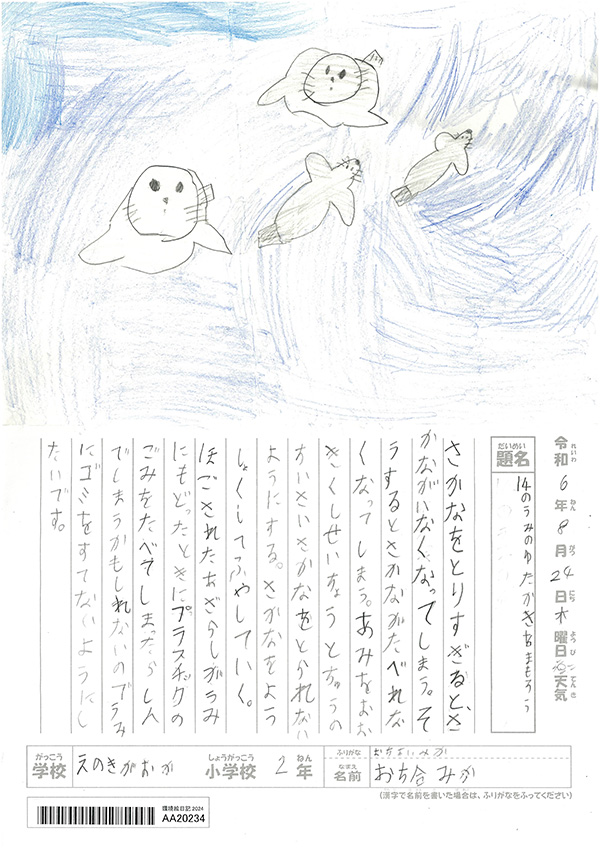 令和6年8月24日木曜日天気
れいわ ねん がつ にち ようび てんき
だいめい
題名
14のうみのゆたかさをまもろう
さかなをとりすぎると、さ
かながいなくなってしまう。そ
うするとさかながたべれな
くなってしまう。あみをおお
きくしせいちょうとちゅうの
ちいさいさかなをとられない
ようにする。さかなをよう
しょくしてふやしていく。
ほごされたあざらしがうみ
にもどったときにプラスチックの
ごみをたべてしまったらしん
でしまうかもしれないのでうみ
にゴミをすてないようにし
たいです。
がっこう
学校
えのきがおか
しょうがっこう
小学校
2
ねん
年
ふりがな
おちあいみか
なまえ
名前
おち合みか
(漢字で名前を書いた場合は、ふりがなをふってください)
環境絵日記2024
AA20234